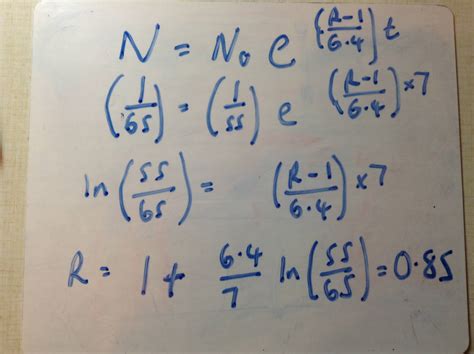 N = N₀ e^((R-1)/6.4)t
(1/65) = (1/55) e^((R-1)/6.4)×7
ln(55/65) = ((R-1)/6.4)×7
R = 1 + 6.4/7 ln(55/65) = 0.85